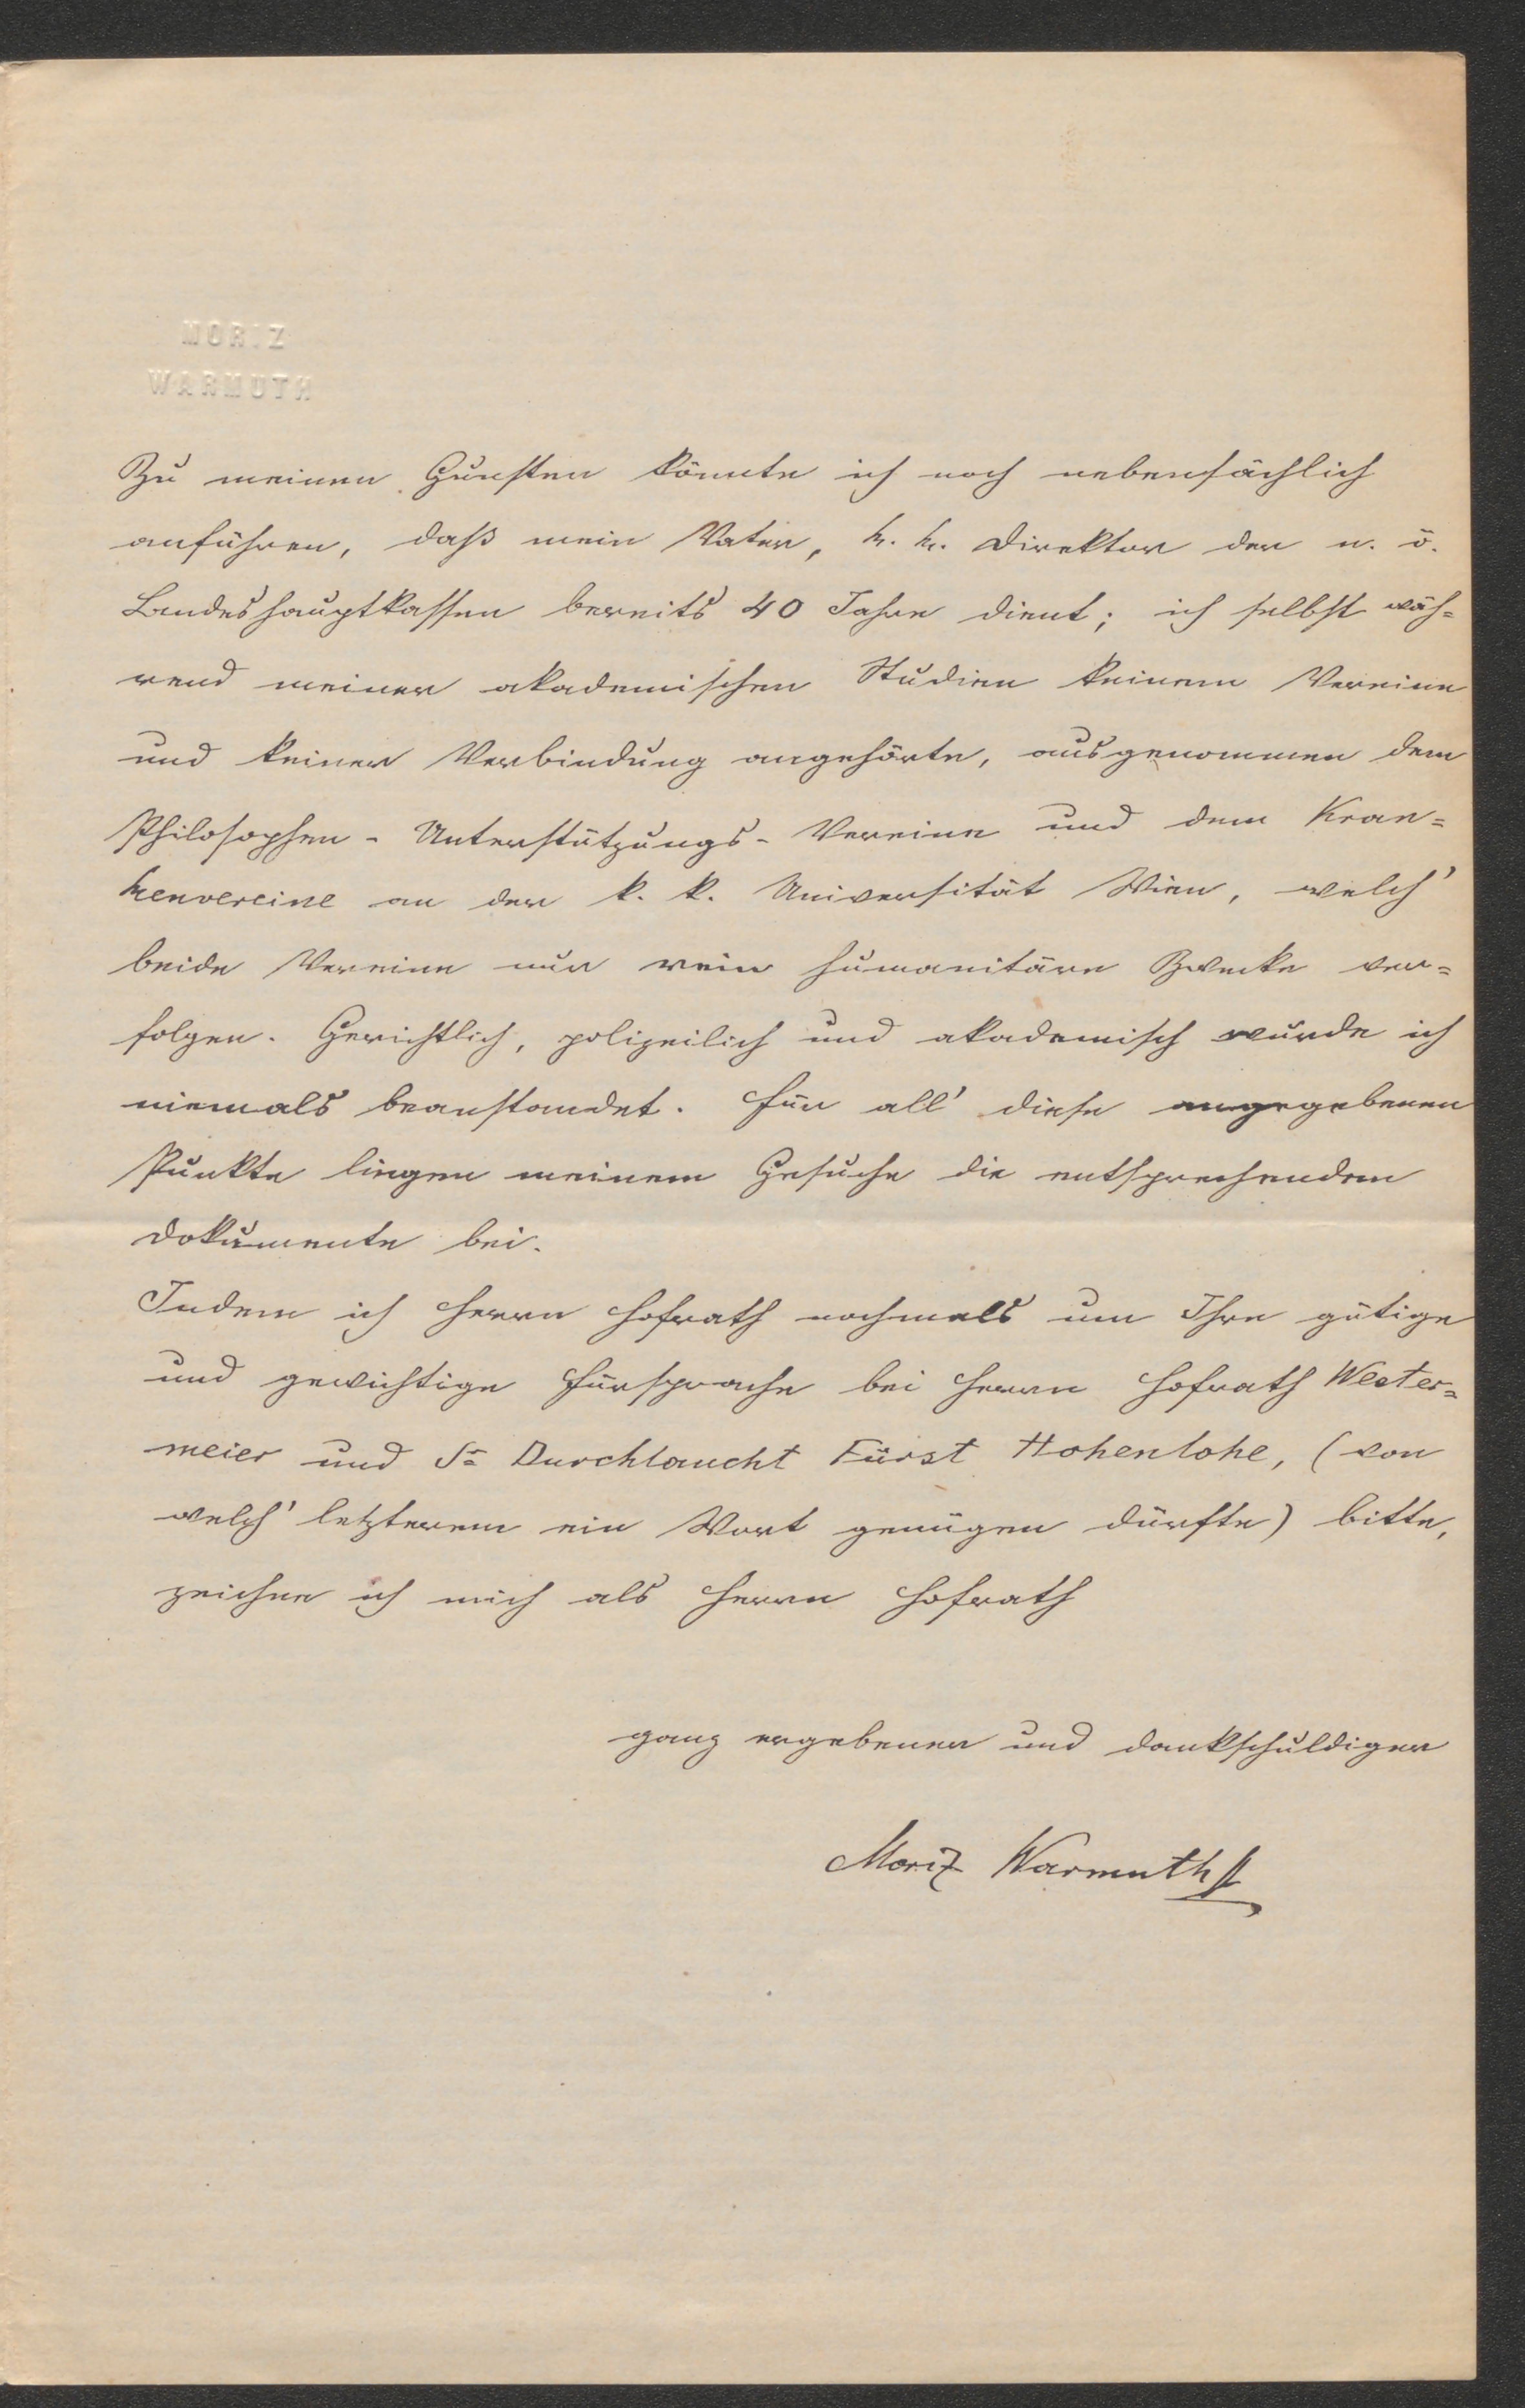 MORIZ
WARMUTH
Zu meinen Gunsten könnte ich noch nebensächlich
anführen, daß mein Vater, k. k. Direktor der n. ö.
Landeshauptkassen bereits 40 Jahre dient; ich selbst wäh=
rend meiner akademischen Studien keinem Vereine
und keiner Verbindung angehörte, ausgenommen dem
Philosophen-Unterstützungs-Vereine und dem Kran=
kenvereine an der k. k. Universität Wien, welch'
beide Vereine nur rein humanitäre Zwecke ver=
folgen. Gerichtlich, polizeilich und akademisch wurde ich
niemals beanstandet. Für all' diese angegebenen
Punkte liegen meinem Gesuche die entsprechenden
Dokumente bei.
Indem ich Herrn Hofrath nochmals um Ihre gütige
und gewichtige Fürsprache bei Herrn Hofrath Wester=
meier und Sr Durchlaucht Fürst Hohenlohe, (von
welch' letzterem ein Wort genügen dürfte) bitte,
zeichne ich mich als Herrn Hofrath
ganz ergebener und dankschuldiger
Moriz Warmuth